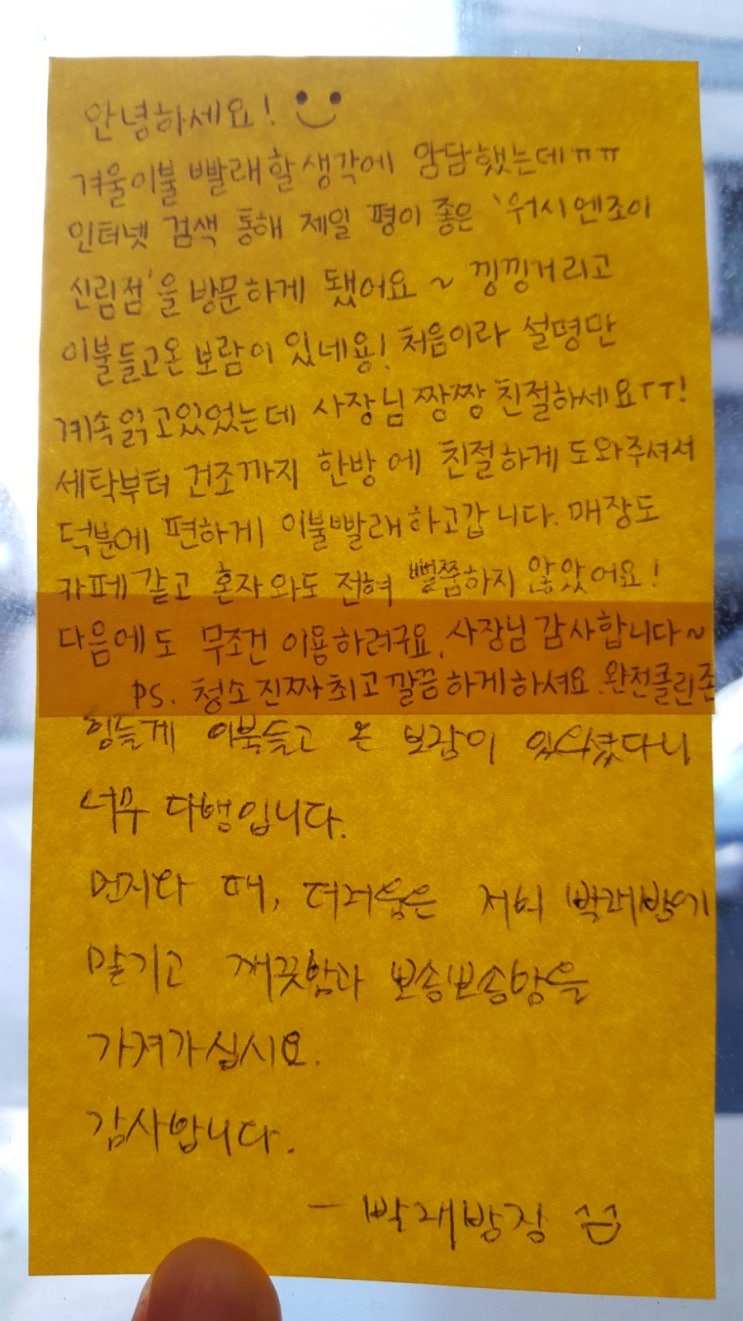 안녕하세요!
겨울이불 빨래할생각에 암담했는데ㅠㅠ
인터넷 검색 통해 제일 평이 좋은 '워시엔조이
신림점'을 방문하게 됐어요 ~ 낑낑거리고
이불들고온 보람이 있네용! 처음이라 설명만
계속읽고있었는데 사장님 짱짱 친절하세요ㅜㅜ!
세탁부터 건조까지 한방에 친절하게 도와주셔서
덕분에 편하게 이불빨래하고갑니다. 매장도
카페같고 혼자와도 전혀 뻘쭘하지 않았어요!
다음에도 무조건 이용하려구요. 사장님감사합니다~
PS. 청소진짜최고깔끔하게하셔요. 완전클린존
힘들게 이불들고 온 보람이 있으셨다니
너무 다행입니다.
먼지와 때, 더러움은 저희 빨래방에
맡기고 깨끗함과 뽀송뽀송함을
가져가십시요.
감사합니다.
- 빨래방장